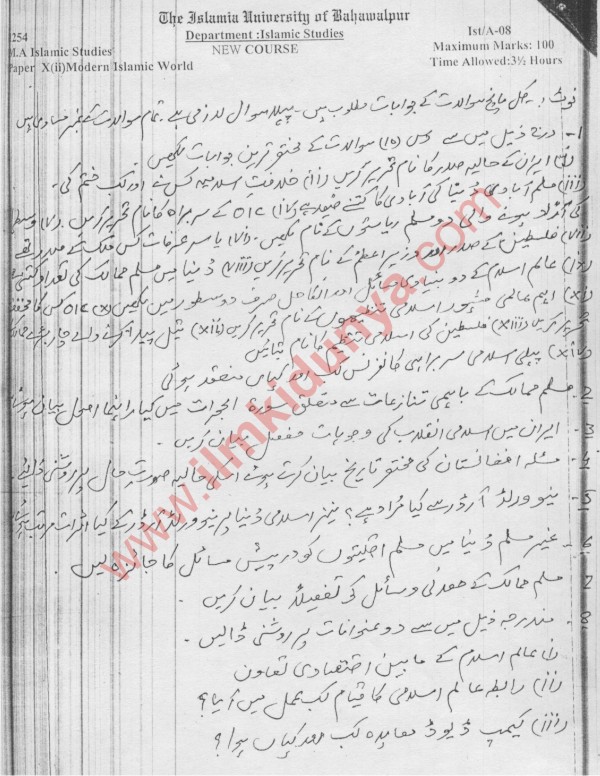 The Islamia University of Bahawalpur
Department :Islamic Studies
NEW COURSE
Ist/A-08
Maximum Marks: 100
Time Allowed:3½ Hours
2254
M.A Islamic Studies
Paper X(ii)Modern Islamic World
نوٹ :- کل پانچ سوالات کے جوابات مطلوب ہیں۔ پہلا سوال لازمی ہے۔ تمام سوالات کے نمبر مساوی ہیں
1- درج ذیل میں سے دس (10) سوالات کے مختصر ترین جوابات لکھیں۔
(i) ایران کے حالیہ صدر کا نام تحریر کریں (ii) خلافت اسلامیہ کس نے اور کب ختم کی۔
(iii) مسلم آبادی دنیا کی آبادی کا کتنے فیصد ہے (iv) OIC کے سربراہ کا نام تحریر کریں۔ (v) وسط
کی آزاد ہونے والی دو مسلم ریاستوں کے نام لکھیں۔ (vi) یاسر عرفات کس ملک کے صدر تھے
(vii) فلسطین کے صدر اور وزیر اعظم کے نام تحریر کریں (viii) دنیا میں مسلم ممالک کی تعداد کتنی
(ix) عالم اسلام کے دو بنیادی مسائل اور انکا حل صرف دو سطور میں لکھیں (x) OIC کس کا مخفف
(xi) اہم عالمی مشہور اسلامی تنظیموں کے نام تحریر کریں (xii) تیل پیدا کرنے والے چار
تحریر کریں (xiii) فلسطین کی اسلامی تنظیم کا نام بتائیں
(xiv) پہلی اسلامی سربراہی کانفرنس کب اور کہاں منعقد ہوئی
2- مسلم ممالک کے باہمی تنازعات سے متعلق سورۃ الحجرات میں کیا راہنما اصول بیان ہوئے
3- ایران میں اسلامی انقلاب کی وجوہات مفصل بیان کریں۔
4- مسئلہ افغانستان کی مختصر تاریخ بیان کرتے ہوئے اسکی حالیہ صورت حال پر روشنی ڈالیے
5- نیو ورلڈ آرڈر سے کیا مراد ہے؟ نیز اسلامی دنیا پر نیو ورلڈ آرڈر کے کیا اثرات مرتب ہوئے
6- غیر مسلم دنیا میں مسلم اقلیتوں کو درپیش مسائل کا جائزہ لیں
7- مسلم ممالک کے معدنی وسائل کی تفصیلاً بیان کریں۔
8- مندرجہ ذیل میں سے دو عنوانات پر روشنی ڈالیں۔
(i) عالم اسلام کے مابین اقتصادی تعاون
(ii) رابطہ عالم اسلامی کا قیام کب عمل میں آیا؟
(iii) کیمپ ڈیوڈ معاہدہ کب اور کہاں ہوا؟
www.ilmkidunya.com